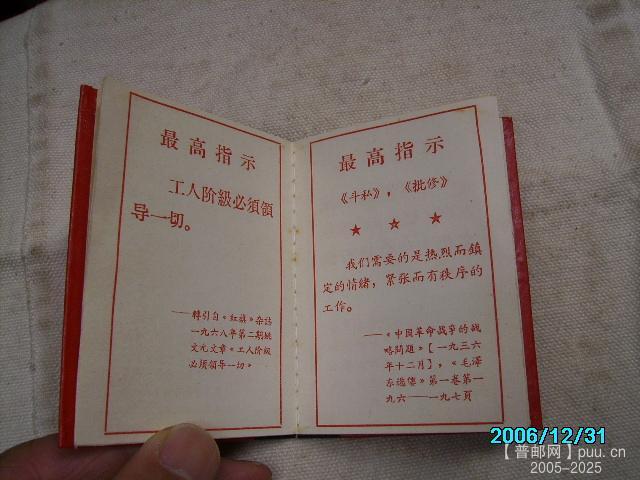 最高指示
工人阶級必須領
导一切。
——轉引自《紅旗》杂誌
一九六八年第二期姚
文元文章《工人阶級
必須領导一切》
最高指示
《斗私》，《批修》
★ ★ ★
我们需要的是热烈而鎮
定的情緒，紧张而有秩序的
工作。
——《中国革命战爭的战
略問題》[一九三六
年十二月]，《毛澤
东选集》第一卷第一
九六——一九七頁
2006/12/31
【普邮网】puu.cn
2005-2025